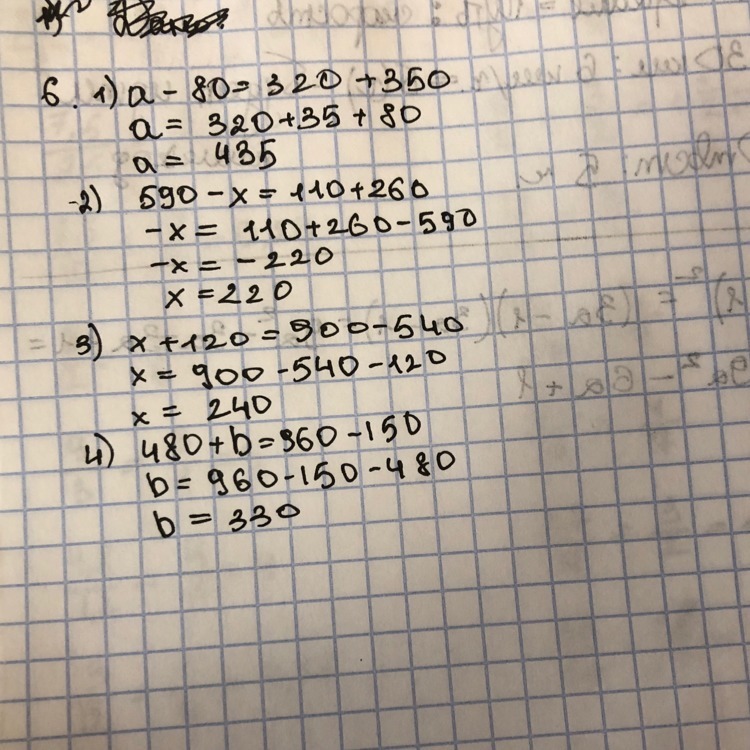 6. 1) a - 80 = 320 + 350
a = 320 + 35 + 80
a = 435
2) 590 - x = 110 + 260
-x = 110 + 260 - 590
-x = -220
x = 220
3) x + 120 = 900 - 540
x = 900 - 540 - 120
x = 240
4) 480 + b = 960 - 150
b = 960 - 150 - 480
b = 330